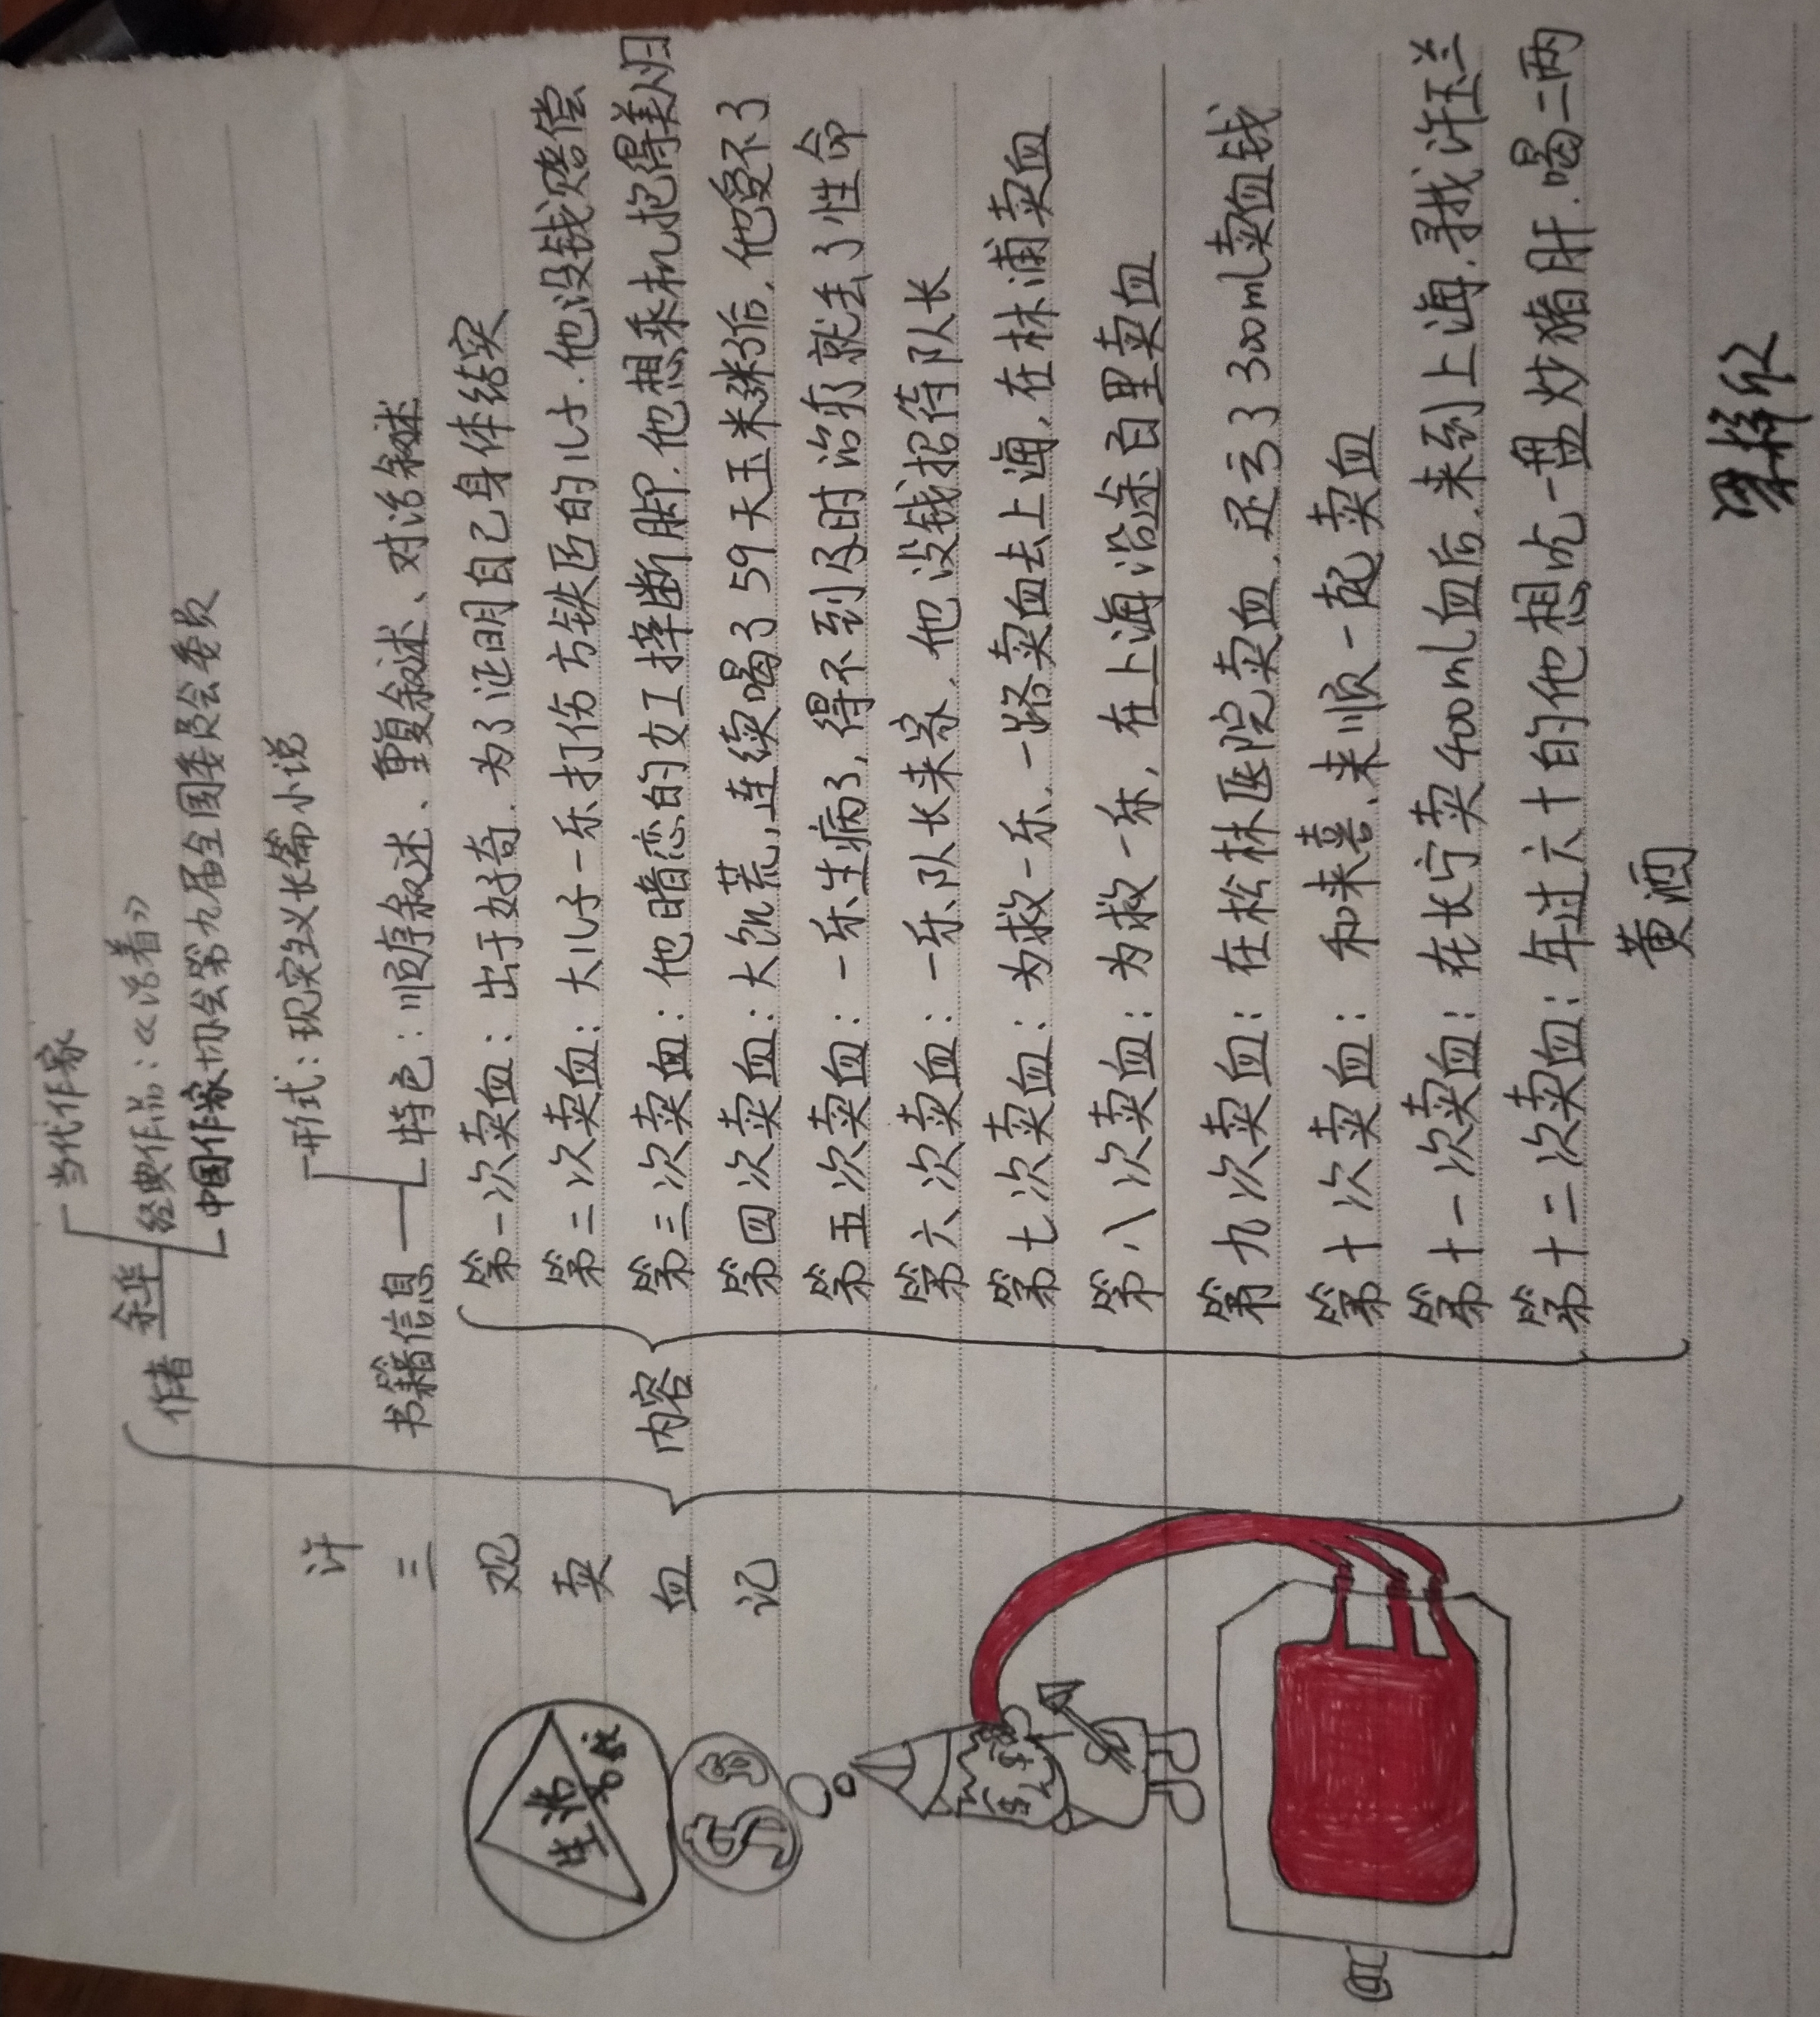 当代作家
作者 余华 经典作品：《活着》
中国作家协会第九届全国委员会委员
形式：现实主义长篇小说
书籍信息
特色：顺序叙述、重复叙述、对话叙述
许三观卖血记
内容
第一次卖血：出于好奇.为了证明自己身体结实
第二次卖血：大儿子一乐打伤方铁匠的儿子.他没钱赔偿
第三次卖血：他暗恋的女工摔断脚.他想乘机抱得美人归
第四次卖血：大饥荒,连续喝了59天玉米粥后.他受不了
第五次卖血：一乐生病了,得不到及时治疗就丢了性命
第六次卖血：一乐队长来家.他没钱招待队长
第七次卖血：为救一乐.一路卖血去上海,在林浦卖血
第八次卖血：为救一乐,在上海沿途百里卖血
第九次卖血：在松林医院卖血.还亏了300ml卖血钱
第十次卖血：和来喜.来顺一起卖血
第十一次卖血：在长宁卖400ml血后.来到上海.寻找许玉兰
第十二次卖血：年过六十的他想吃一盘炒猪肝.喝二两
黄酒
生活
$ $